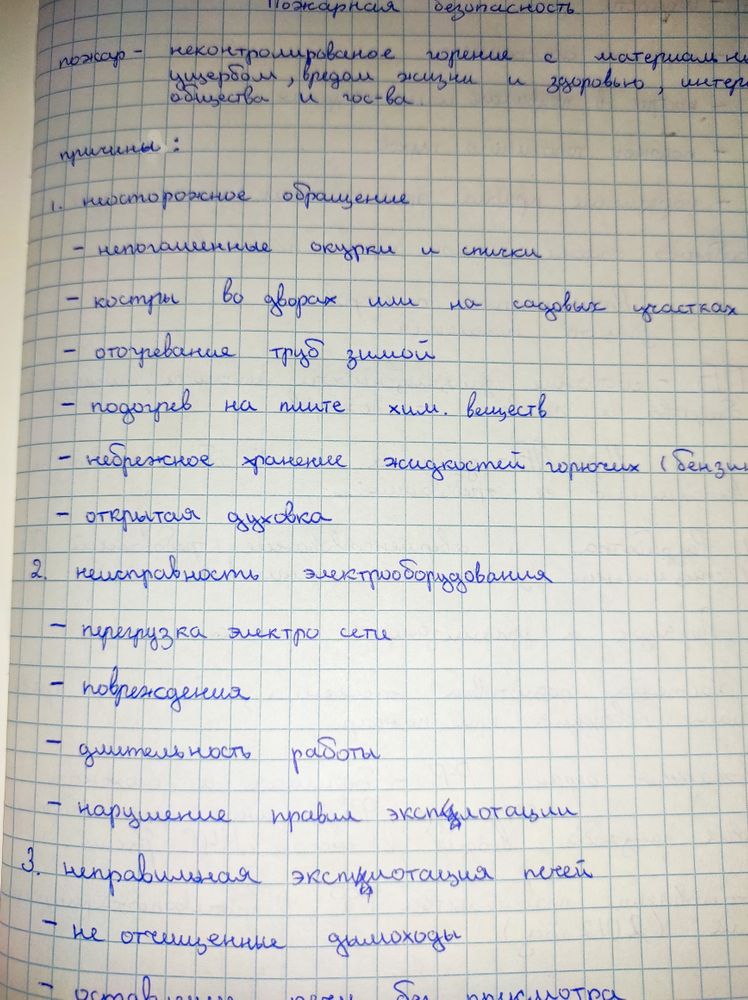 Пожарная безопасность
пожар - неконтролированое горение с материальн
ущербом, вредом жизни и здоровью, интер
общества и гос-ва.
причины:
1. неосторожное обращение
- непогашенные окурки и спички
- костры во дворах или на садовых участках
- отогревание труб зимой
- подогрев на плите хим. веществ
- небрежное хранение жидкостей горючих (бензин
- открытая духовка
2. неисправность электрооборудования
- перегрузка электро сети
- повреждения
- длительность работы
- нарушение правил эксплотации
3. неправильная эксплотация печей
- не отчищенные дымоходы
- оставление печи без присмотра